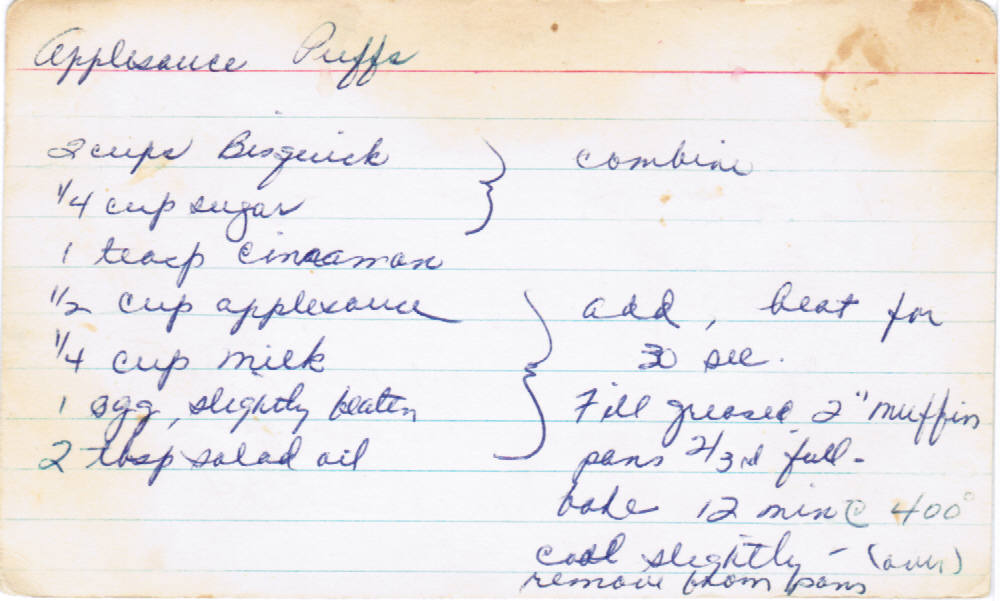 Applesauce Puffs
2 cups Bisquick
1/4 cup sugar
1 teasp cinnamon
combine
1/2 cup applesauce
1/4 cup milk
1 egg, slightly beaten
2 tbsp salad oil
add, beat for
30 sec.
Fill greased 2" muffin
pans 2/3rd full -
bake 12 min @ 400°
cool slightly - (over)
remove from pans